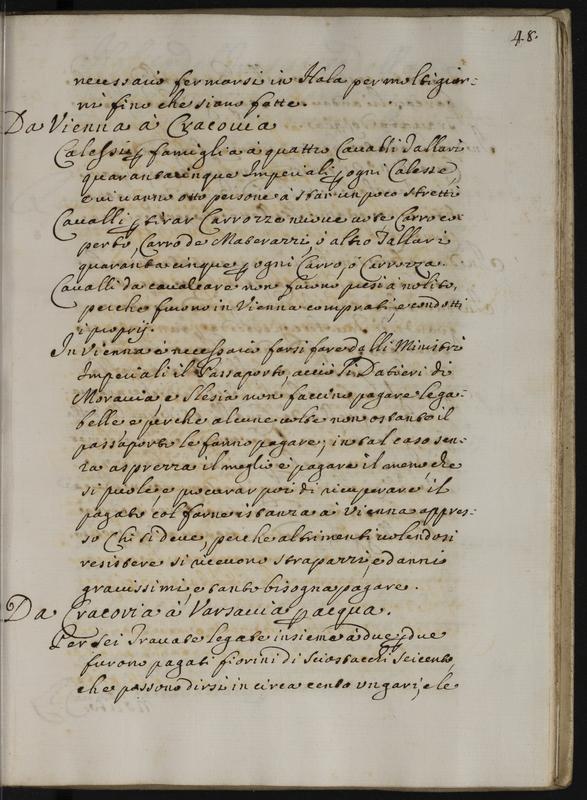 48.
necessario fermarsi in Hala per molti gior:
ni fino che siano fatte.
Da Vienna à Cracovia
Calesse p famiglia a quattro Cavalli Tallari
quaranta cinque Imperiali p ogni Calesse,
e vi vanno otto persone à star un poco stretti
Cavalli p tirar Carrozze nuove a ote Carro co:
perto, Carro de Materazzi, ò altro Tallari
quaranta cinque p ogni Carro, ò Carrozza.
Cavalli da cavalcare non furono presi à nolito,
perche furono in Vienna comprati, e condotti
i proprij.
In Vienna è necessario farsi fare dalli Ministri
Imperiali il Passaporto, acciò li Datieri di
Moravia e Slesia non faccino pagare le ga:
belle e perche alcune volte non ostante il
passaporto le fanno pagare; in tal caso sen:
za asprezza il meglio è pagare il meno, che
si puole, e procurar poi di ricuperare il
pagato col farne istanza a Vienna appres:
so Chi si deve, perche altrimenti volendosi
resistere si ricevono strapazzi, e danni
gravissimi e tanto bisogna pagare.
Da Cracovia à Varsavia p acqua.
Per sei Travate legate insieme à due p due
furono pagati fiorini di Sciostacchi Seicento,
che possono dirsi in circa cento ungari, e le